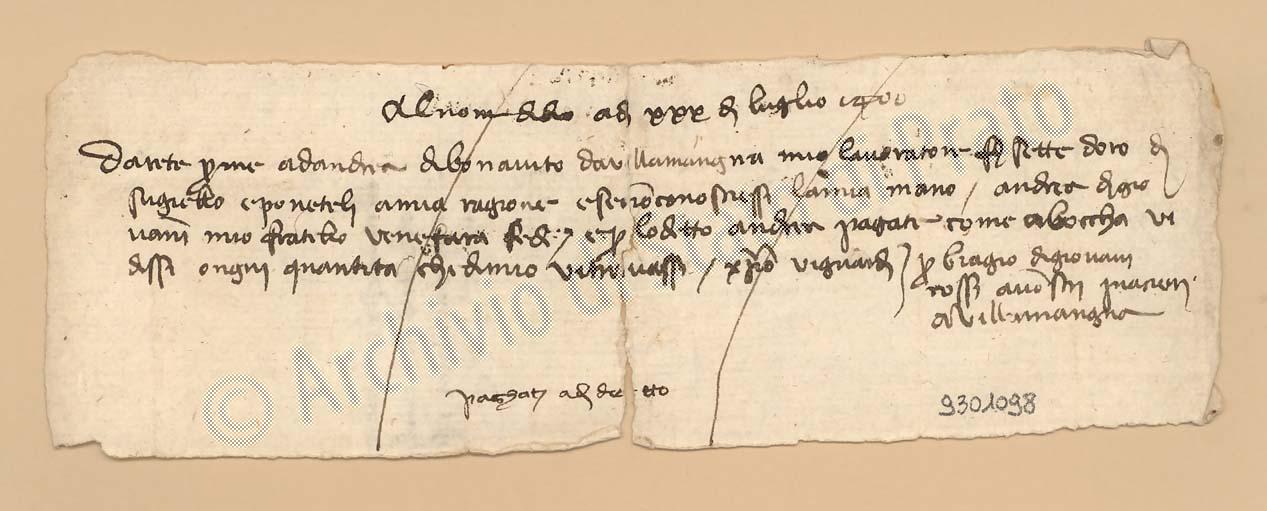 Al nome dido adi xxx di luglio 1400
Datete per me ad andrea di bonaiuto da villamangna mio lavoratore f sette doro di
sugiello e ponete li a mia ragione e se non conosciessi la mia mano / andrea di gio
vanni mio fratello vene fara fede / e per lo detto andrea pagate come a boccha vi
dissi ongni quantita che di mio vi trovassi / xpo vi guardi / per biagio di giovani
rossi a vostri piacieri
a villamangna
paghati adi detto
9301098
© Archivio di Stato di Prato